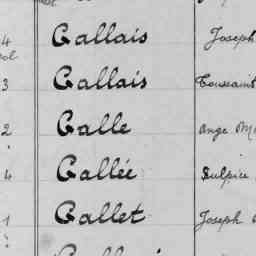 4 Gallais Joseph
3 Gallais Toussaint
2 Galle Ange
4 Gallée Sulpice
1 Gallet Joseph